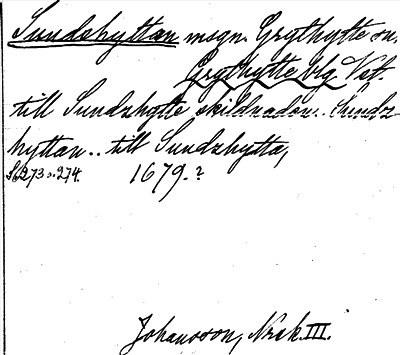 Sundshyttan msgn. Grythytte sn.
Grythytte blg Vet.
till Sundzhytte skildnaden.. Sundz
hyttan.. till Sundzhytta,
S. 273 o. 274. 1679.?
Johansson, Nrsk. III.